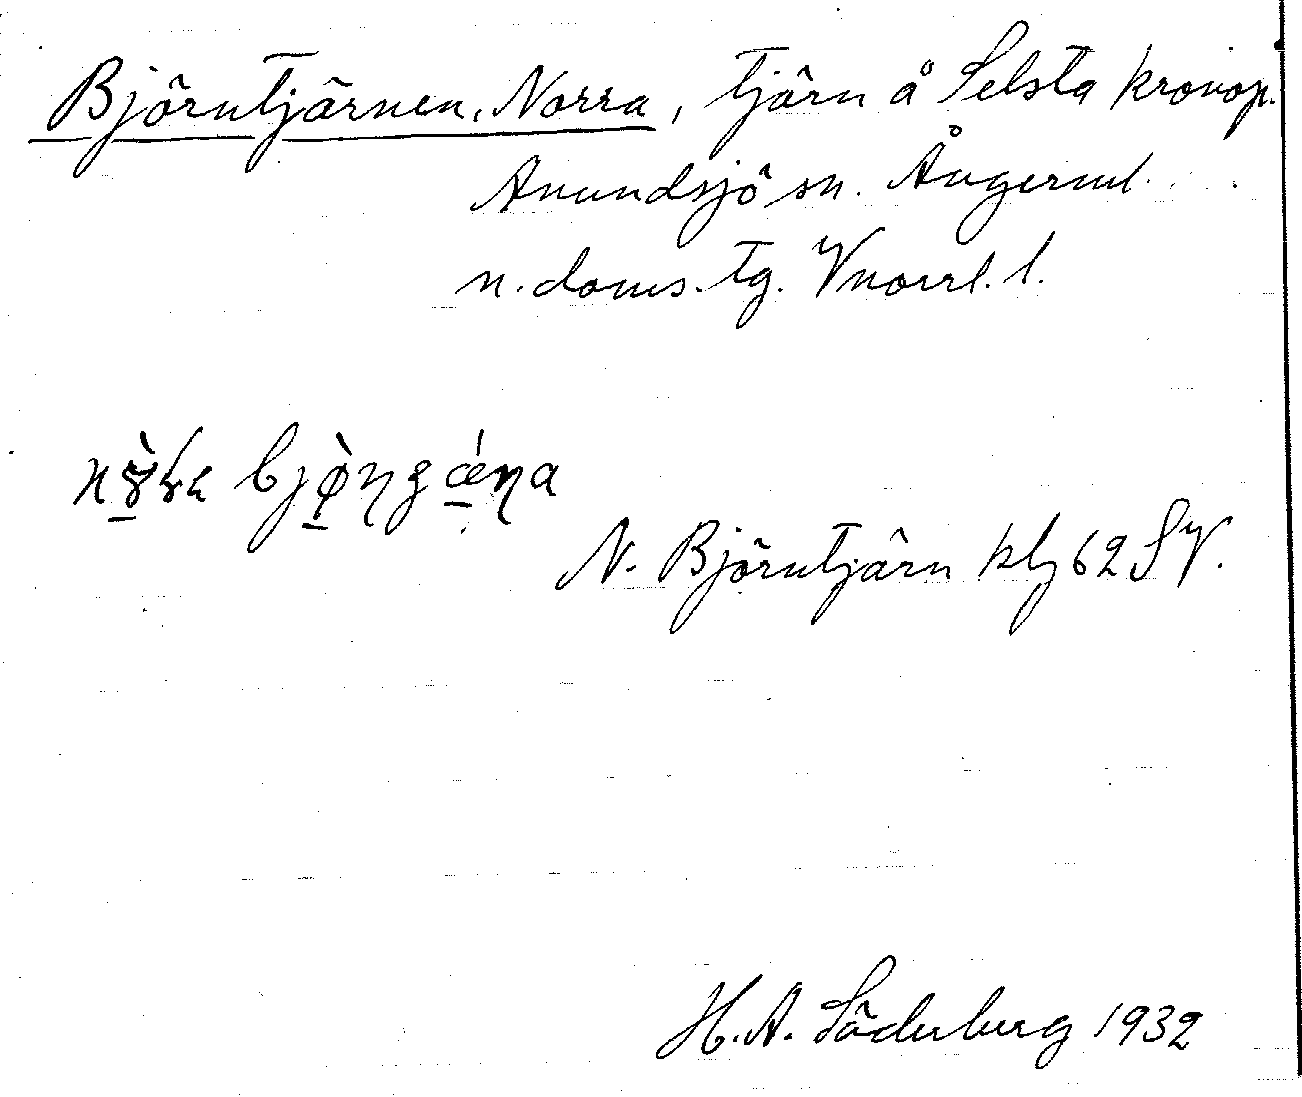 Björntjärnen, Norra, tjärn å Selsta kronop.
Anundsjö sn. Ångerml.
n. doms. tg. Vnorrl. l.
N. Björntjärn kbl 62 SV.
H. A. Söderberg 1932